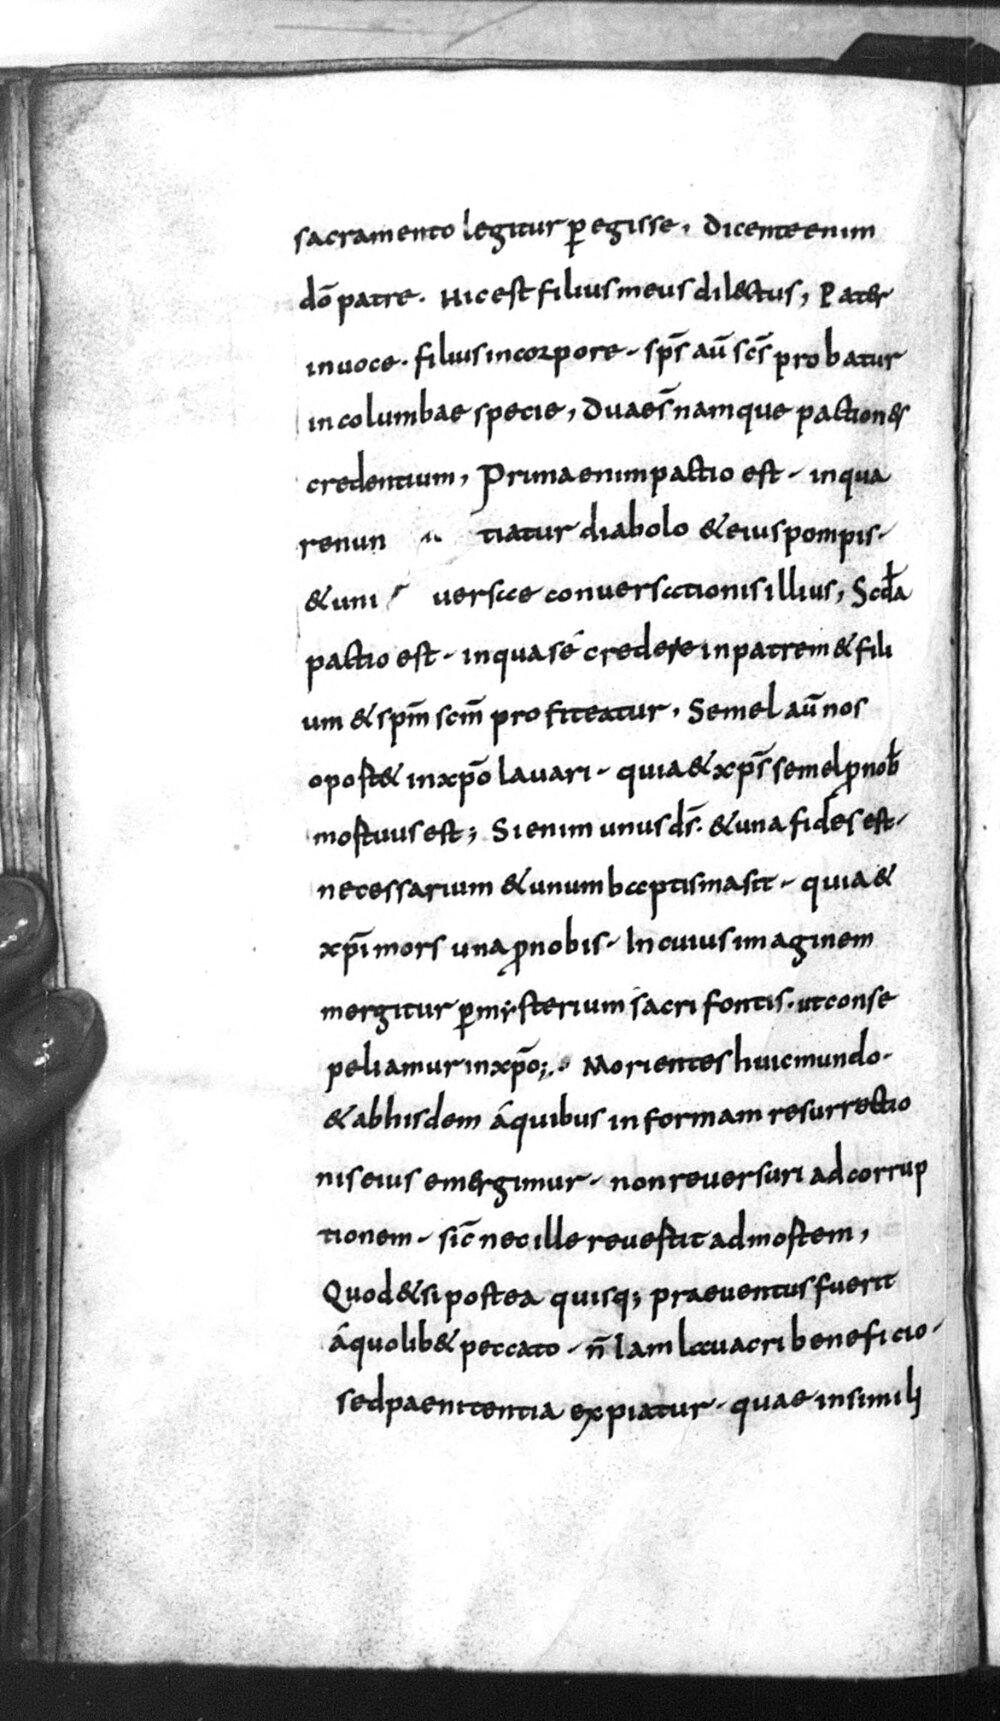 sacramento legitur p̄egisse, Dicente enim
dō patre. Hic est filius meus dilectus, Pater
in uoce. filius in corpore - sp̄s aū sc̄s probatur
in columbae specie, Duae s̄ namque pactiones
credentium, Prima enim pactio est - in qua
renun tiatur diabolo & eius pompis -
& uni uersae conuersationis illius, Scđa
pactio est - in qua sé credere in patrem & fili
um & sp̄m sc̄m profiteatur, Semel aū nos
oport& in xp̄o lauari - quia & xp̄s semel p̄ nob̄
mortuus est; Si enim unus d̄s. & una fides est -
necessarium & unum baptisma sit - quia &
xp̄i mors una p̄ nobis - In cuius imaginem
mergitur p̄ mysterium sacri fontis. ut conse
peliamur in xp̄o; Morientes huic mundo -
& ab hisdem á quibus in formam resurrectio
nis eius emergimur - non reuersuri ad corrup
tionem - sic̄ nec ille reuertit ad mortem,
Quod & si postea quisq; praeuentus fuerit
á quolib& peccato - n̄ Iam lauacri beneficio -
sed paenitentia expiatur - quae in simili